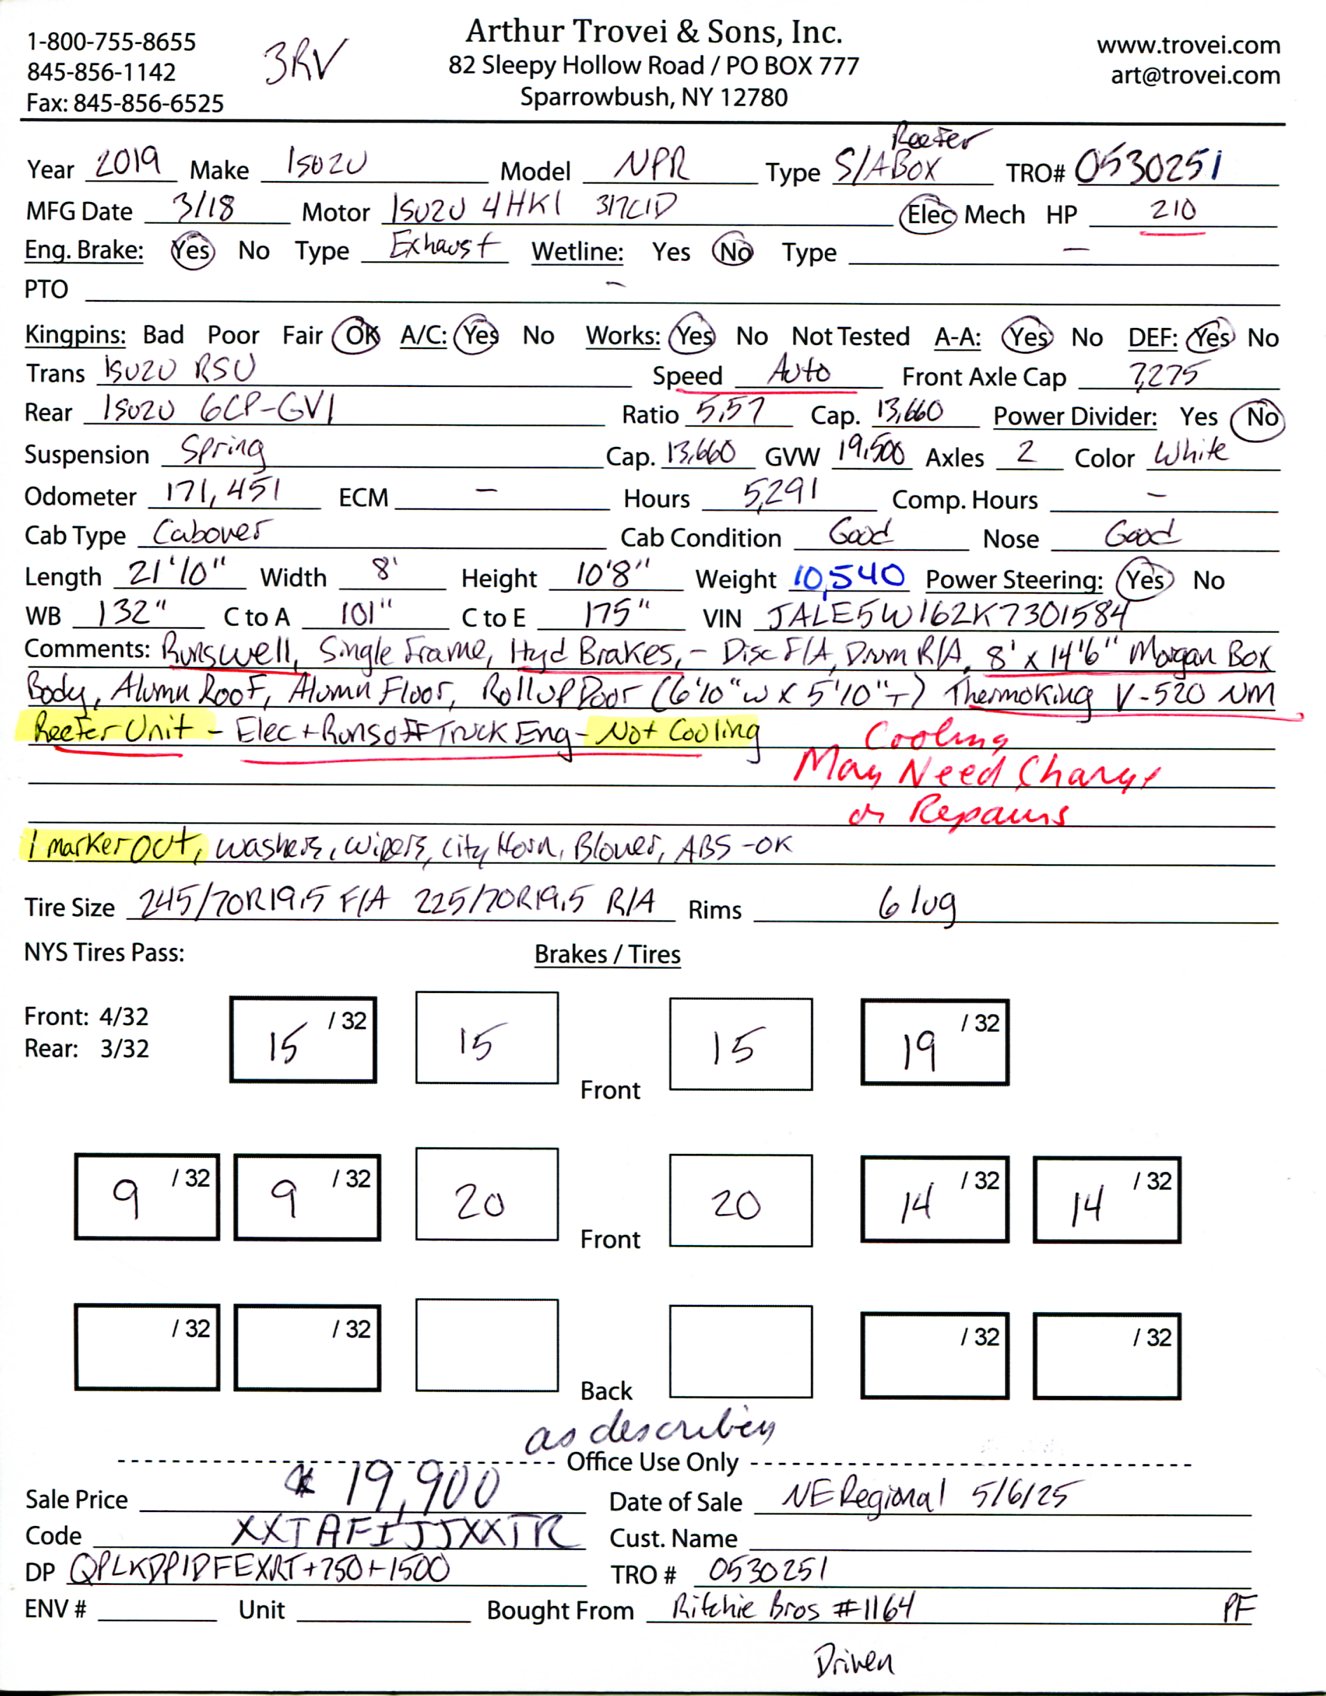 1-800-755-8655
845-856-1142
Fax: 845-856-6525
3RV
Arthur Trovei & Sons, Inc.
82 Sleepy Hollow Road / PO BOX 777
Sparrowbush, NY 12780
www.trovei.com
art@trovei.com
Reefer
Year 2019 Make ISUZU Model NPR Type S/A BOX TRO# 0530251
MFG Date 3/18 Motor ISUZU 4HK1 317CID Elec Mech HP 210
Eng. Brake: Yes No Type Exhaust Wetline: Yes No Type —
PTO —
Kingpins: Bad Poor Fair OK A/C: Yes No Works: Yes No Not Tested A-A: Yes No DEF: Yes No
Trans ISUZU RSU Speed Auto Front Axle Cap 7,275
Rear ISUZU GCP-GV1 Ratio 5.57 Cap. 13,660 Power Divider: Yes No
Suspension Spring Cap. 13,660 GVW 19,500 Axles 2 Color White
Odometer 171,451 ECM — Hours 5,291 Comp. Hours —
Cab Type Cabover Cab Condition Good Nose Good
Length 21'10" Width 8' Height 10'8" Weight 10,540 Power Steering: Yes No
WB 132" C to A 101" C to E 175" VIN JALE5W162K7301584
Comments: Runs well, Single Frame, Hyd Brakes, - Disc F/A, Drum R/A, 8' x 14'6" Morgan Box
Body, Alumn Roof, Alumn Floor, Roll up Door (6'10"W x 5'10"T) Thermoking V-520 NM
Reefer Unit - Elec + Runs off Truck Eng - Not Cooling Cooling
May Need Charge
or Repairs
1 marker out, washers, wipers, City Horn, Blower, ABS - OK
Tire Size 245/70R19.5 F/A 225/70R19.5 R/A Rims 6 lug
NYS Tires Pass: Brakes / Tires
Front: 4/32
Rear: 3/32
15 /32 15 Front 15 19 /32
9 /32 9 /32 20 Front 20 14 /32 14 /32
/32 /32 Back /32 /32
Office Use Only
Sale Price 19,900 Date of Sale NE Regional 5/6/25
Code XXTAFIJJXXTR Cust. Name
DP QPLKDPIDFEXRT+750+1500 TRO # 0530251
ENV # Unit Bought From Ritchie Bros #1164 PF
Driven